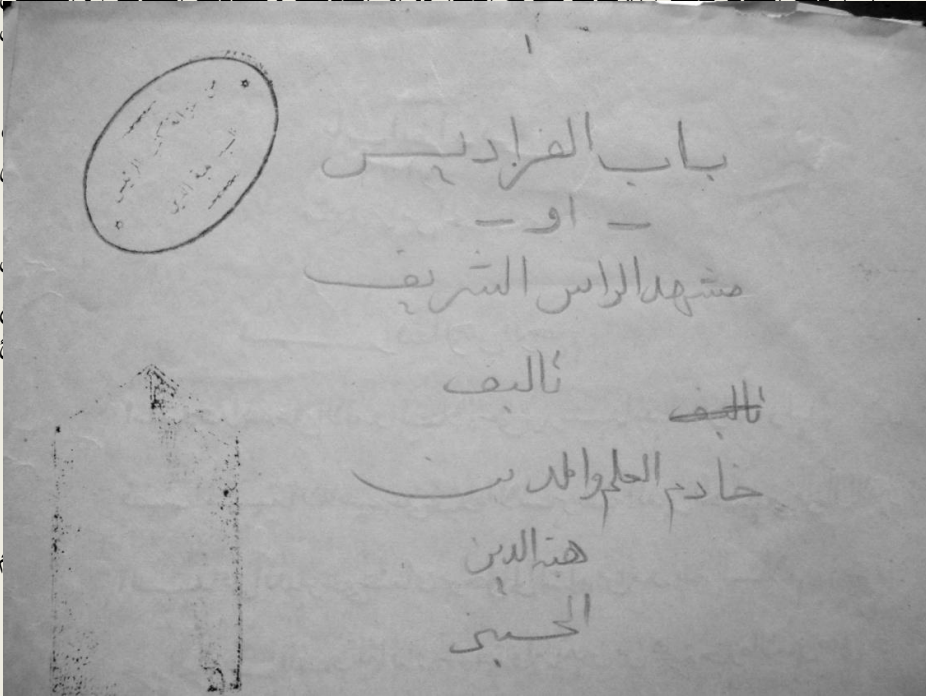 ١
باب الفراديس
- او -
مشهد الراس الشريف
تاليف
تاليف
خادم العلم والدين
هبة الدين
الحسيني